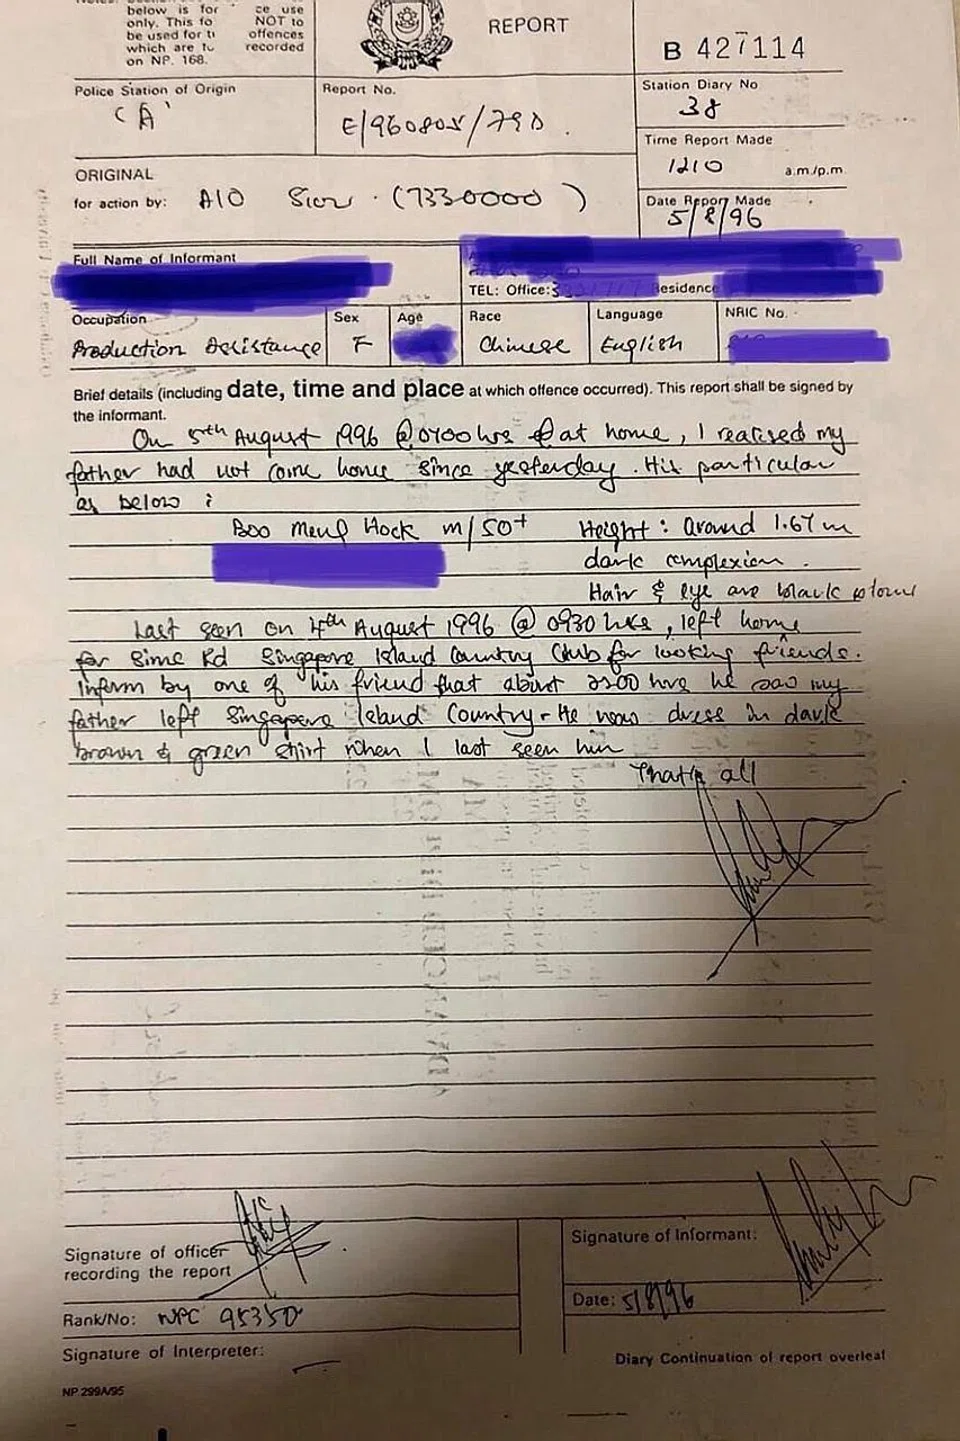 below is for ce use
only. This fo NOT to
be used for offences
which are recorded
on NP. 168.
REPORT
B 427114
Police Station of Origin
'A'
Report No.
E/960805/790
Station Diary No
38
Time Report Made
1210 a.m./p.m
Date Report Made
5/8/96
ORIGINAL
for action by: AIO (7330000)
Full Name of Informant
TEL: Office: Residence
Occupation
Production Assistance
Sex
F
Age
Race
Chinese
Language
English
NRIC No.
Brief details (including date, time and place at which offence occurred). This report shall be signed by
the informant.
On 5th August 1996 @ 0700 hrs at home, I realised my
father had not come home since yesterday. His particular
as below :
Boo Meng Hock m/50+ Height : around 1.67 m
dark complexion.
Hair & eye are black colour
Last seen on 4th August 1996 @ 0930 hrs, left home
for Sime Rd Singapore Island Country Club for looking friends.
Inform by one of his friend that about 2200 hrs he saw my
father left Singapore Island Country. He was dress in dark
brown & green shirt when I last seen him
That's all
Signature of officer
recording the report
Signature of Informant:
Date: 5/8/96
Rank/No: WPC 95350
Signature of Interpreter:
Diary Continuation of report overleaf
NP 299A/95